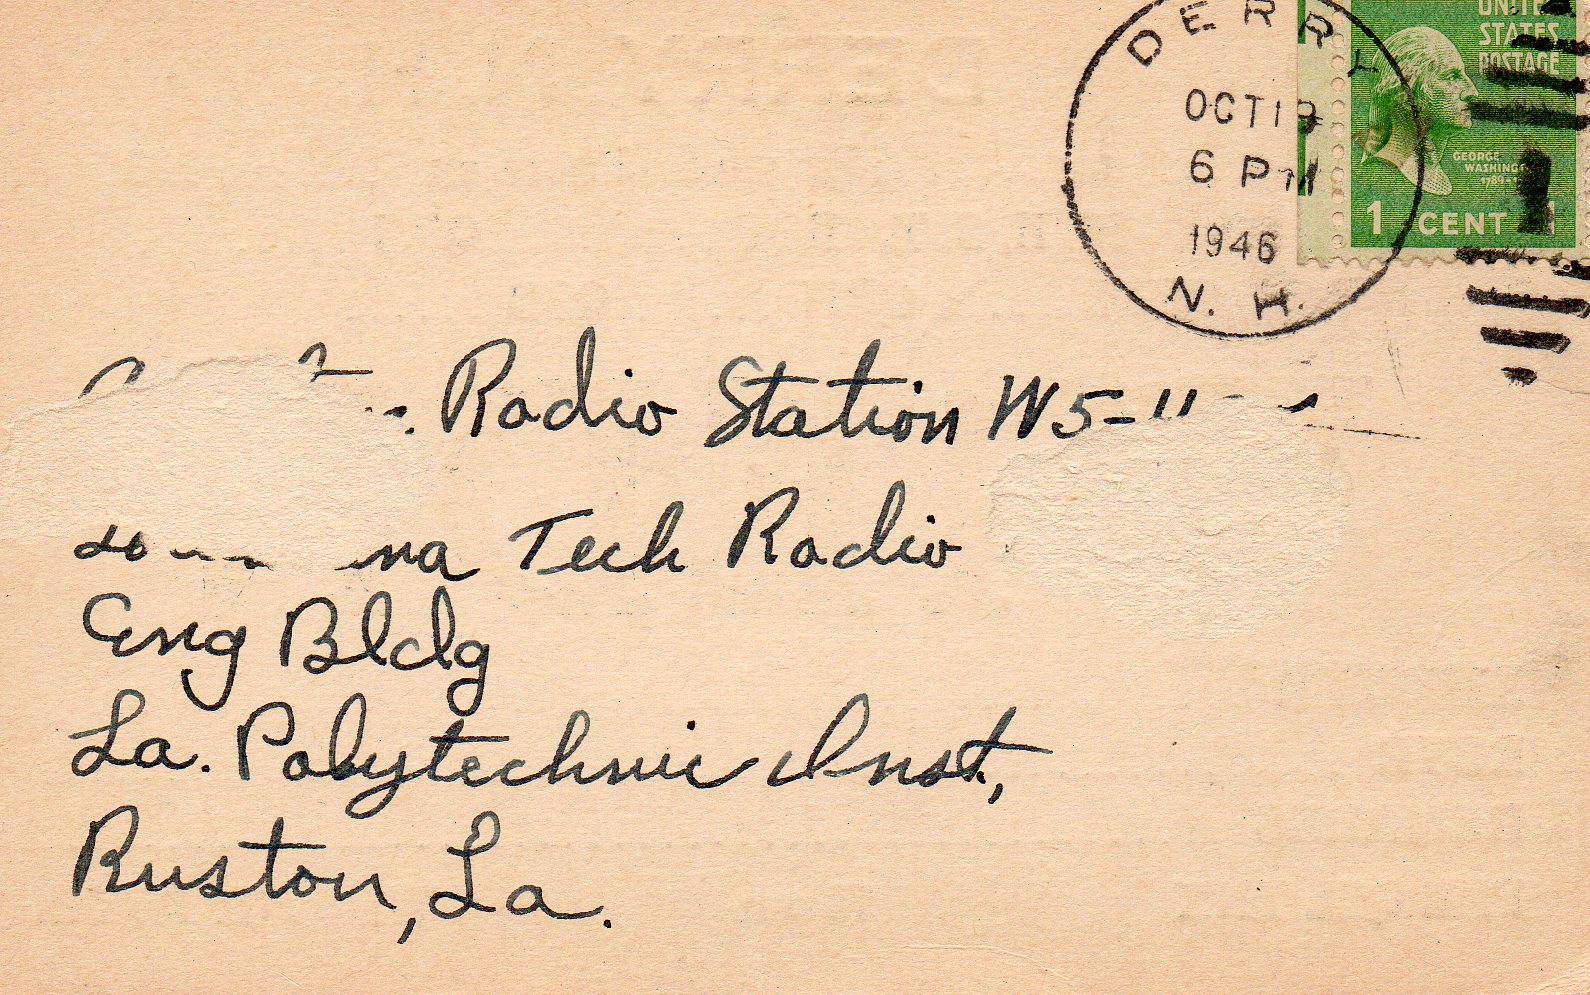 DERRY
OCT 19
6 PM
1946
N. H.
UNITED
STATES
POSTAGE
GEORGE
WASHING
1789-
1 CENT
Radio Station W5-
Tech Radio
Eng Bldg
La. Polytechnic Inst,
Ruston, La.